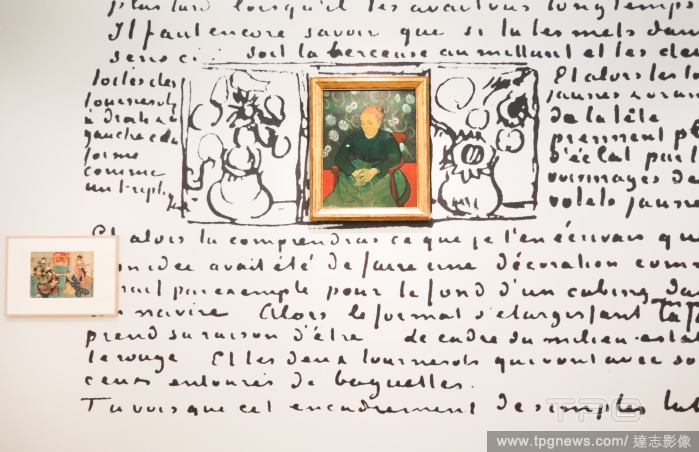 plus tard lorsqu'il les avait longtemps
Il faut encore savoir que si tu les mets dans
sens ci: soit la berceuse au millant et les deux
toiles des
tournesols
à droite et à
gauche cela
forme
comme
un triptyque
Et alors les to
jaunes
de la tête
prennent pl
d'éclat par l
voisinages de
volets jaunes
Et alors tu comprendras ce que je t'en écrivais que
mon idée avait été de faire une décoration comm
serait par exemple pour le fond d'un cabine dans
un navire Alors le format s'élargissant la fa
prend sa raison d'être le cadre du milieu est al
le rouge Et les deux tournesols qui vont avec so
ceux entourés de baguettes.
Tu vois que cet encadrement de simples lat
TPG
www.tpgnews.com/ 達志影像